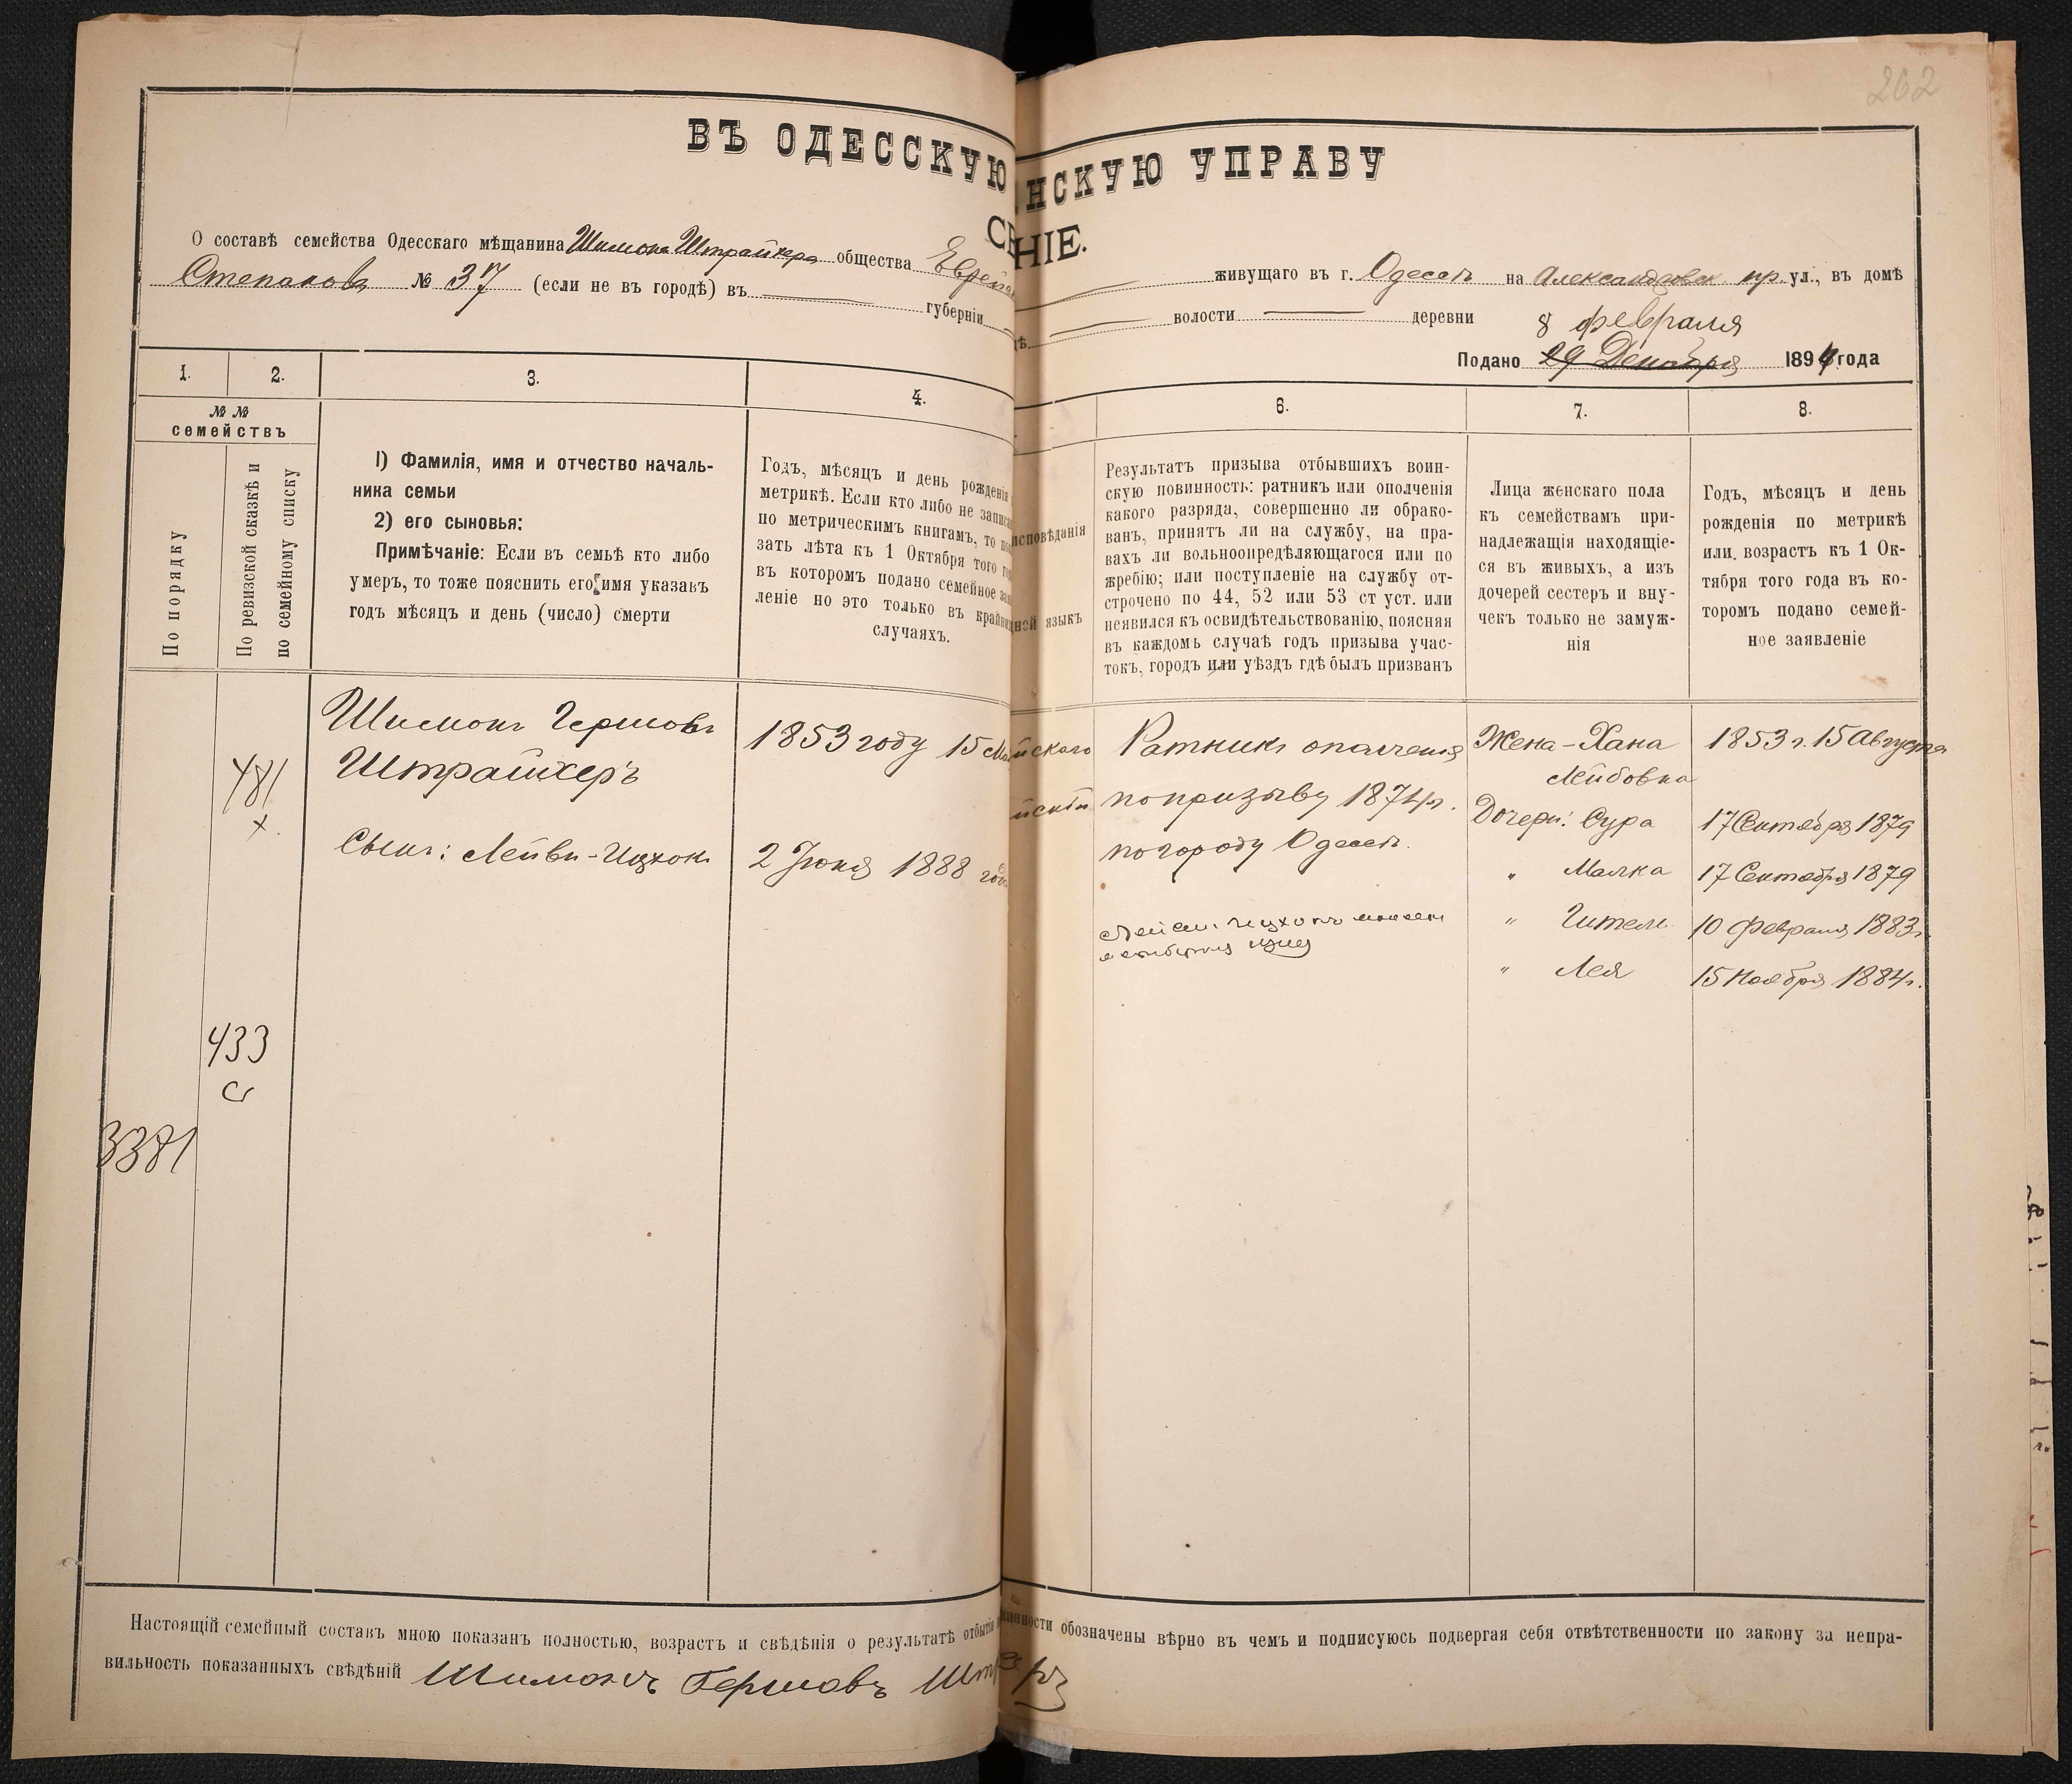 262
ВЪ ОДЕССКУЮ НСКУЮ УПРАВУ
НІЕ.
О составѣ семейства Одесскаго мѣщанина Шимона Штрайхера общества Еврей живущаго въ г. Одессѣ на Александровск. пр. ул., въ домѣ
Степанова № 37 (если не въ городѣ) въ губерніи волости деревни
8 февраля
Подано 29 Декабря 189 года
1. 2. 3. 4. 6. 7. 8.
№ №
семействъ
По порядку
По ревизской сказкѣ и
по семейному списку
1) Фамилія, имя и отчество началь-
ника семьи
2) его сыновья:
Примѣчаніе: Если въ семьѣ кто либо
умеръ, то тоже пояснить его имя указавъ
годъ мѣсяцъ и день (число) смерти
Годъ, мѣсяцъ и день рожденія
метрикѣ. Если кто либо не записа
по метрическимъ книгамъ, то по
зать лѣта къ 1 Октября того го
въ которомъ подано семейное зая
леніе но это только въ крайни
случаяхъ.
исповѣданія
ной языкъ
Результатъ призыва отбывшихъ воин-
скую повинность: ратникъ или ополченія
какого разряда, совершенно ли обрако-
ванъ, принятъ ли на службу, на пра-
вахъ ли вольноопредѣляющагося или по
жребію; или поступленіе на службу от-
строчено по 44, 52 или 53 ст уст. или
неявился къ освидѣтельствованію, поясняя
въ каждомъ случаѣ годъ призыва учас-
токъ, городъ или уѣздъ гдѣ былъ призванъ
Лица женскаго пола
къ семействамъ при-
надлежащія находящіе-
ся въ живыхъ, а изъ
дочерей сестеръ и вну-
чекъ только не замуж-
нія
Годъ, мѣсяцъ и день
рожденія по метрикѣ
или, возрастъ къ 1 Ок-
тября того года въ ко-
торомъ подано семей-
ное заявленіе
481
х.
433
с
3381
Шимонъ Гершовъ
Штрайхеръ
Сынъ: Лейви-Ицхокъ
1853 году 15 Ма
2 Іюня 1888 год
йскаго
йскій
Ратникъ ополченія
по призыву 1874 г.
по городу Одессѣ.
Ицхокъ
Жена - Хана
Лейбовна
Дочери: Сура
" Малка
" Гитель
" Лея
1853 г. 15 Августа
17 Сентября 1879
17 Сентября 1879
10 февраля 1883 г.
15 Ноября 1884 г.
Настоящій семейный составъ мною показанъ полностью, возрастъ и свѣдѣнія о результатѣ отбытія инности обозначены вѣрно въ чемъ и подписуюсь подвергая себя отвѣтственности по закону за непра-
вильность показанныхъ свѣдѣній Шимонъ Гершовъ Шт ръ